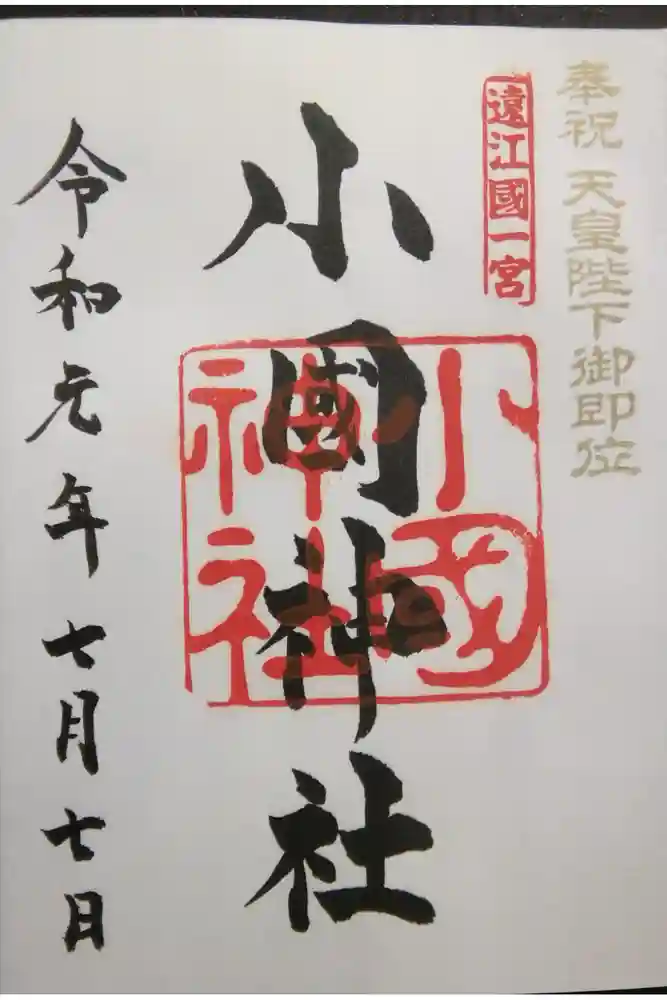 奉祝 天皇陛下御即位
遠江國一宮
小國神社
小國
神社
令和元年七月七日